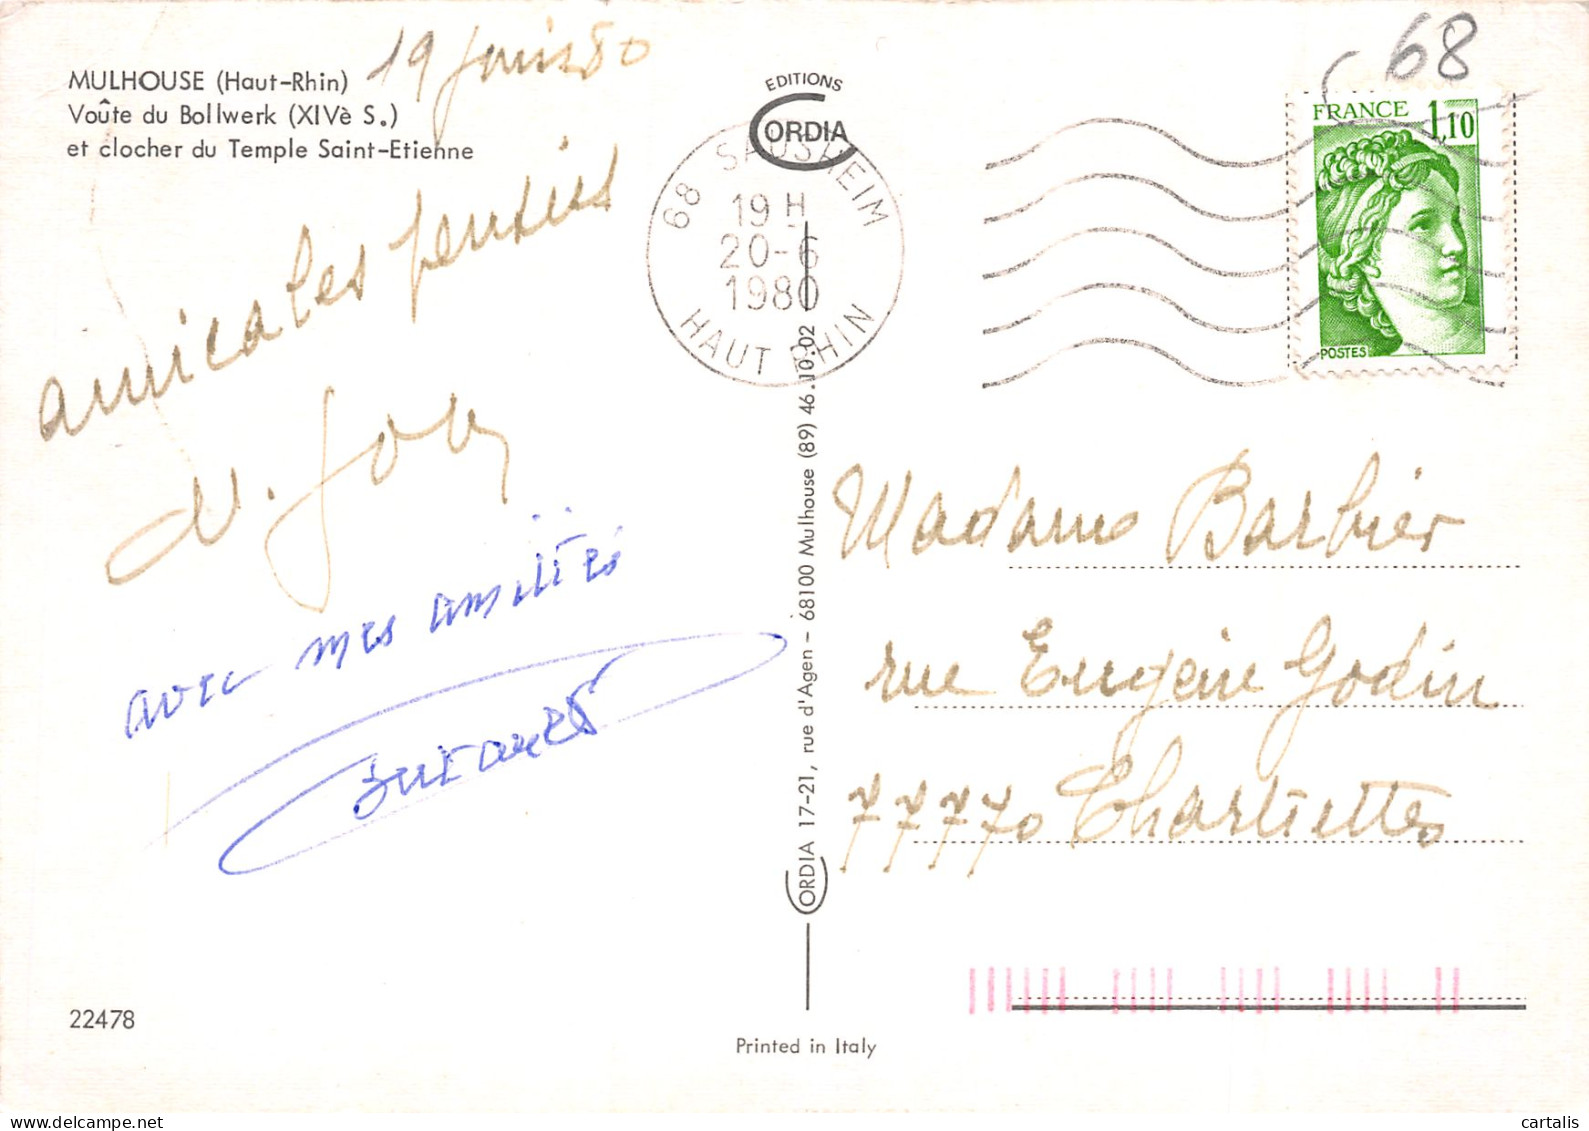 MULHOUSE (Haut-Rhin)
Voûte du Bollwerk (XIVè S.)
et clocher du Temple Saint-Etienne
19 juin 80
amicales pensées
avec mes amitiés
22478
EDITIONS
CORDIA
68 SAUSHEIM
19 H
20-6
1980
HAUT RHIN
CORDIA 17-21, rue d'Agen - 68100 Mulhouse (89) 46.10.02
Printed in Italy
68
FRANCE 1,10
POSTES
Madame Barbier
rue Eugène Godin
77770 Chartrettes
cartalis